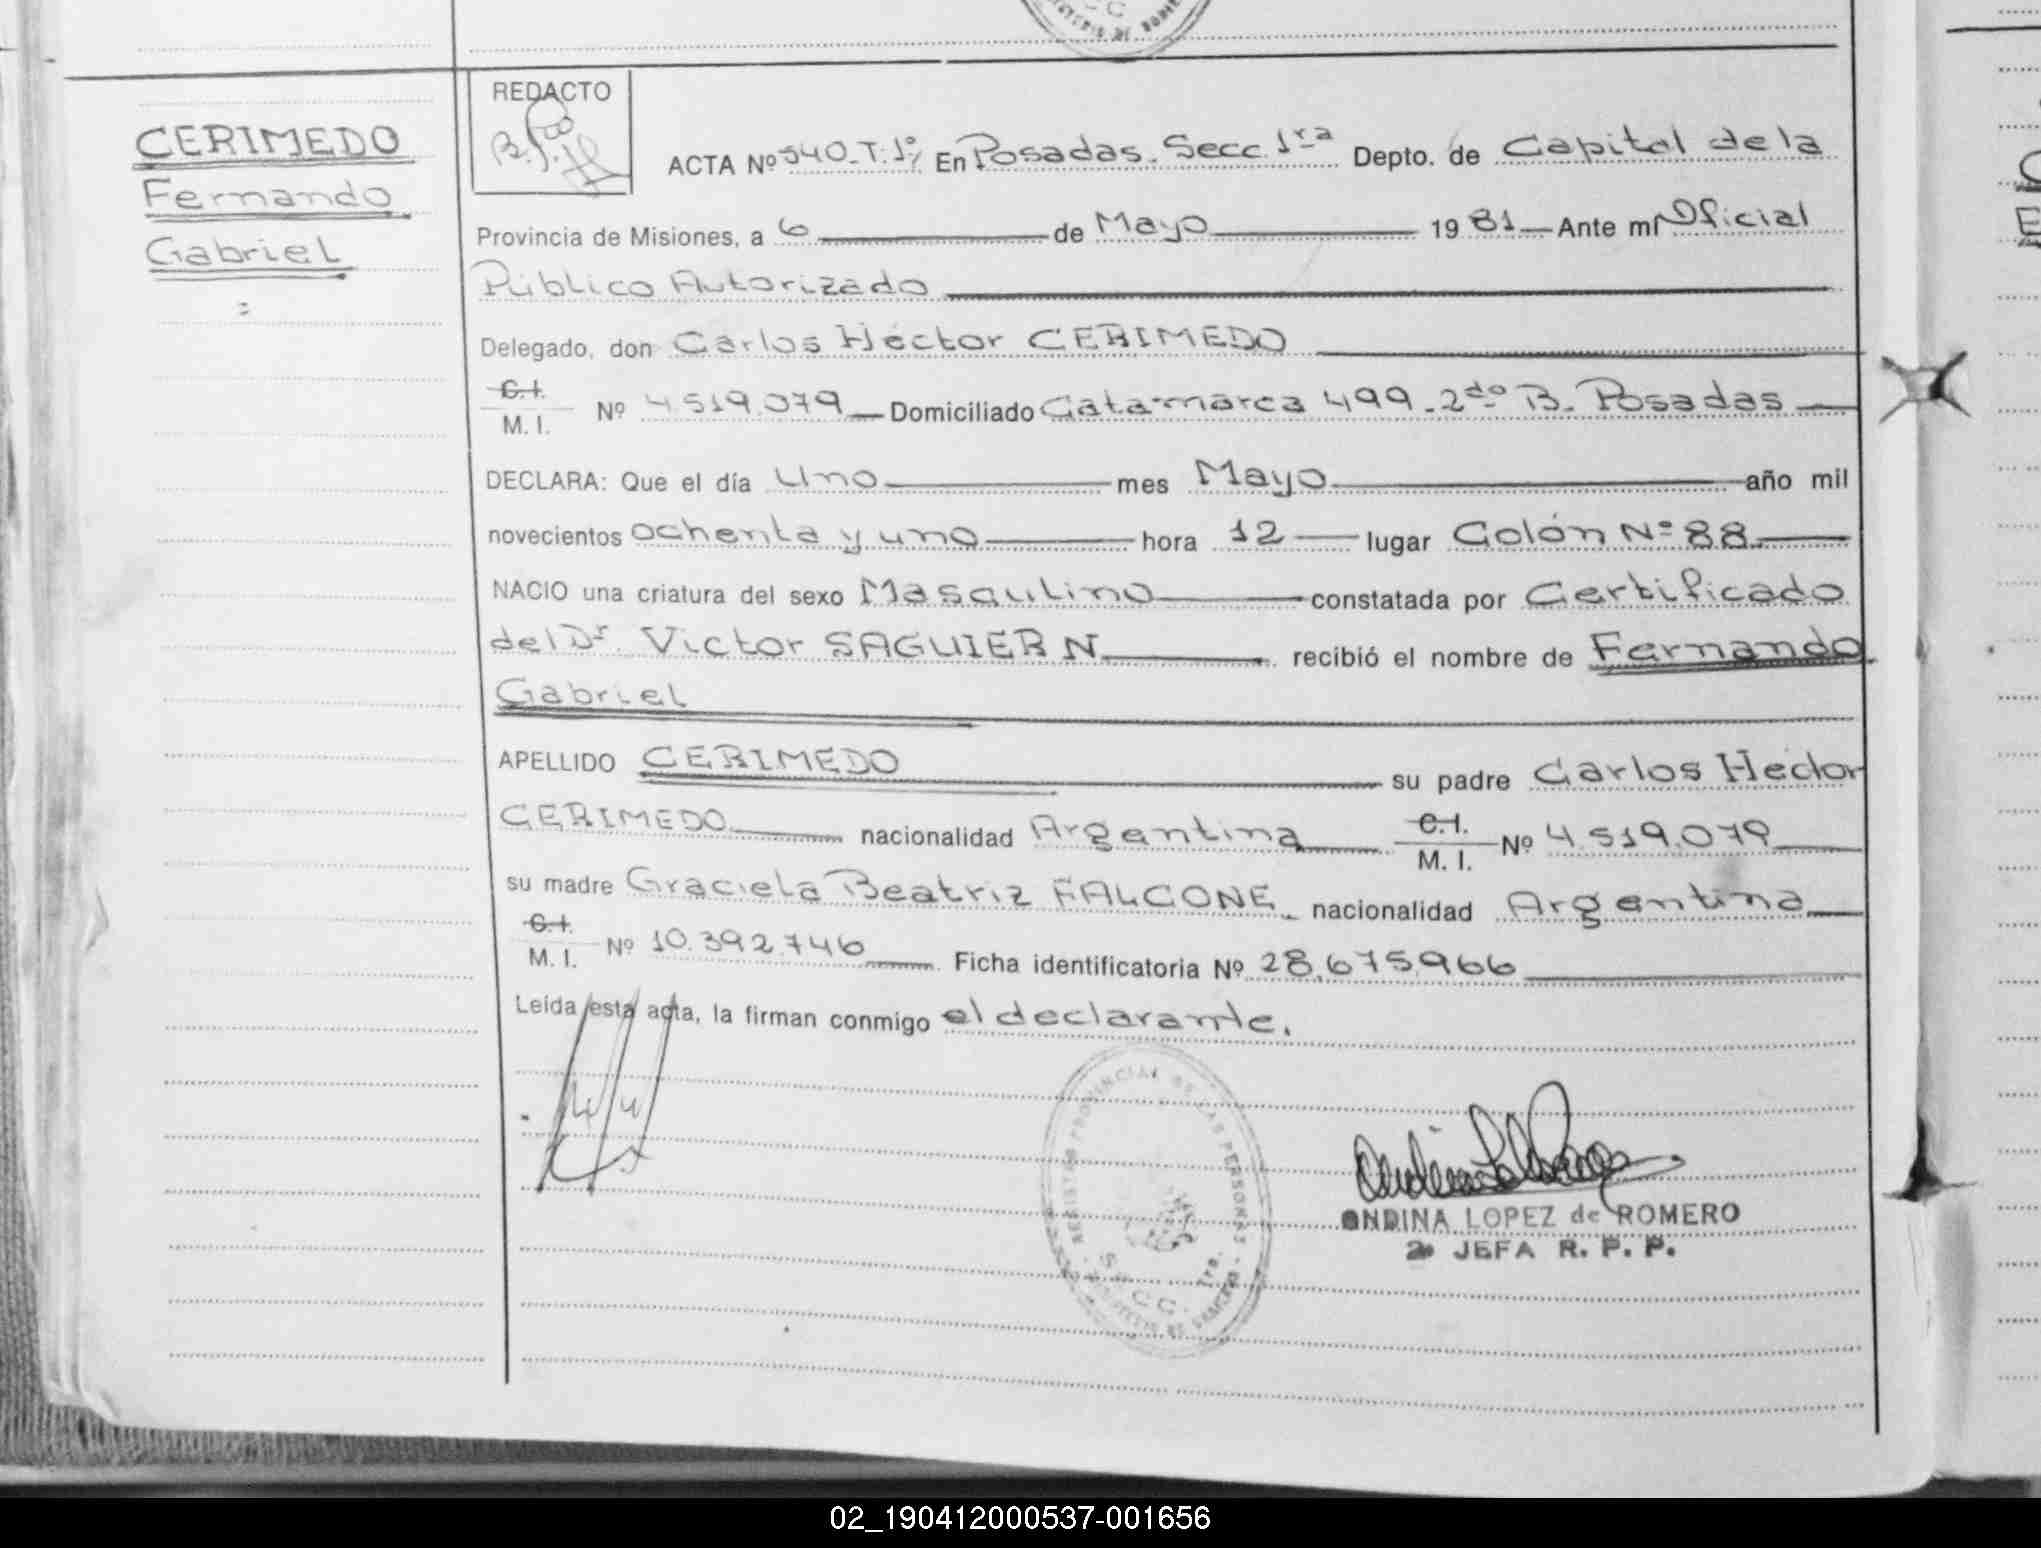 CERIMEDO
Fernando
Gabriel
REDACTO
ACTA Nº 540.T.1º/ En Posadas. Secc. 1ra Depto. de Capital de la
Provincia de Misiones, a 6 de Mayo 1981 Ante mí Oficial
Público Autorizado
Delegado, don Carlos Héctor CERIMEDO
C.I.
M. I. Nº 4.519.079 Domiciliado Catamarca 499 - 2do B. Posadas
DECLARA: Que el día Uno mes Mayo año mil
novecientos ochenta y uno hora 12 lugar Colón Nº 88
NACIO una criatura del sexo Masculino constatada por Certificado
del Dr. Victor SAGUIER N recibió el nombre de Fernando
Gabriel
APELLIDO CERIMEDO su padre Carlos Hector
CERIMEDO nacionalidad Argentina C.I.
M. I. Nº 4.519.079
su madre Graciela Beatriz FALCONE nacionalidad Argentina
C.I.
M. I. Nº 10.392.746 Ficha identificatoria Nº 28.675.966
Leída esta acta, la firman conmigo el declarante.
REGISTRO PROVINCIAL DE LAS PERSONAS
SECC. 1ra.
ONDINA LOPEZ de ROMERO
2º JEFA R. P. P.
02_190412000537-001656